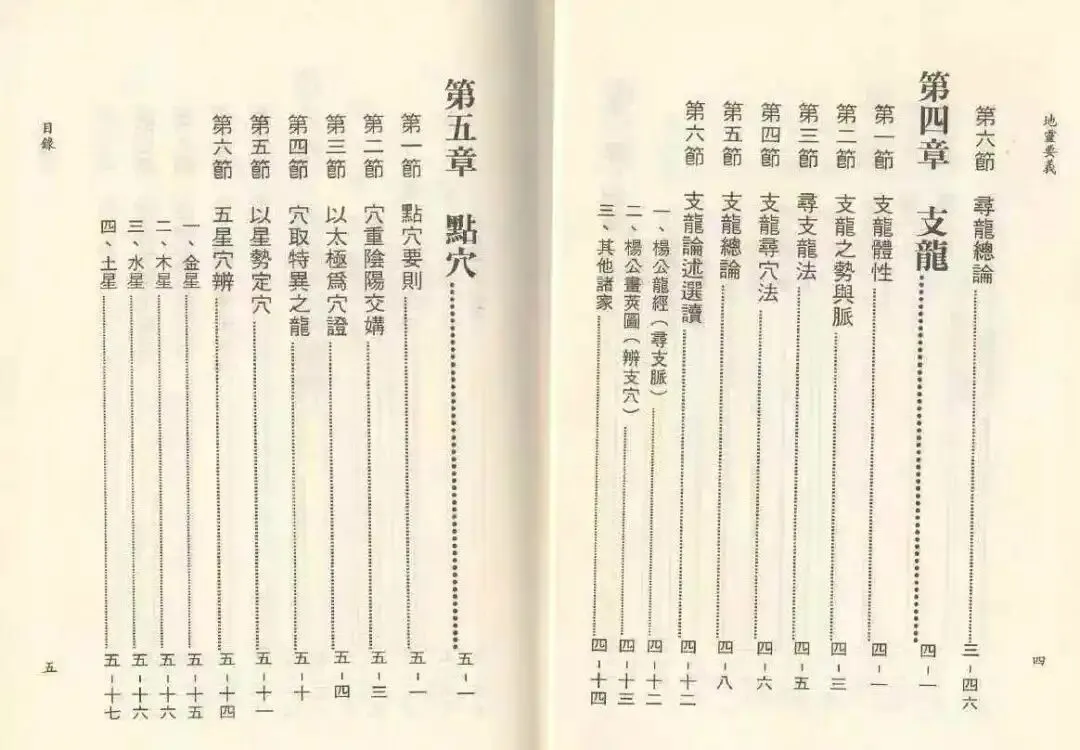 地靈要義
第六節 尋龍總論 三-四六
第四章 支龍 四-一
第一節 支龍體性 四-一
第二節 支龍之勢與脈 四-三
第三節 尋支龍法 四-五
第四節 支龍尋穴法 四-六
第五節 支龍總論 四-八
第六節 支龍論述選讀 四-十二
一、楊公龍經（尋支脈） 四-十二
二、楊公畫莢圖（辨支穴） 四-十三
三、其他諸家 四-十四
四
第五章 點穴 五-一
第一節 點穴要則 五-一
第二節 穴重陰陽交媾 五-三
第三節 以太極爲穴證 五-四
第四節 穴取特異之龍 五-十
第五節 以星勢定穴 五-十一
第六節 五星穴辨 五-十四
一、金星 五-十五
二、木星 五-十六
三、水星 五-十六
四、土星 五-十七
目錄
五